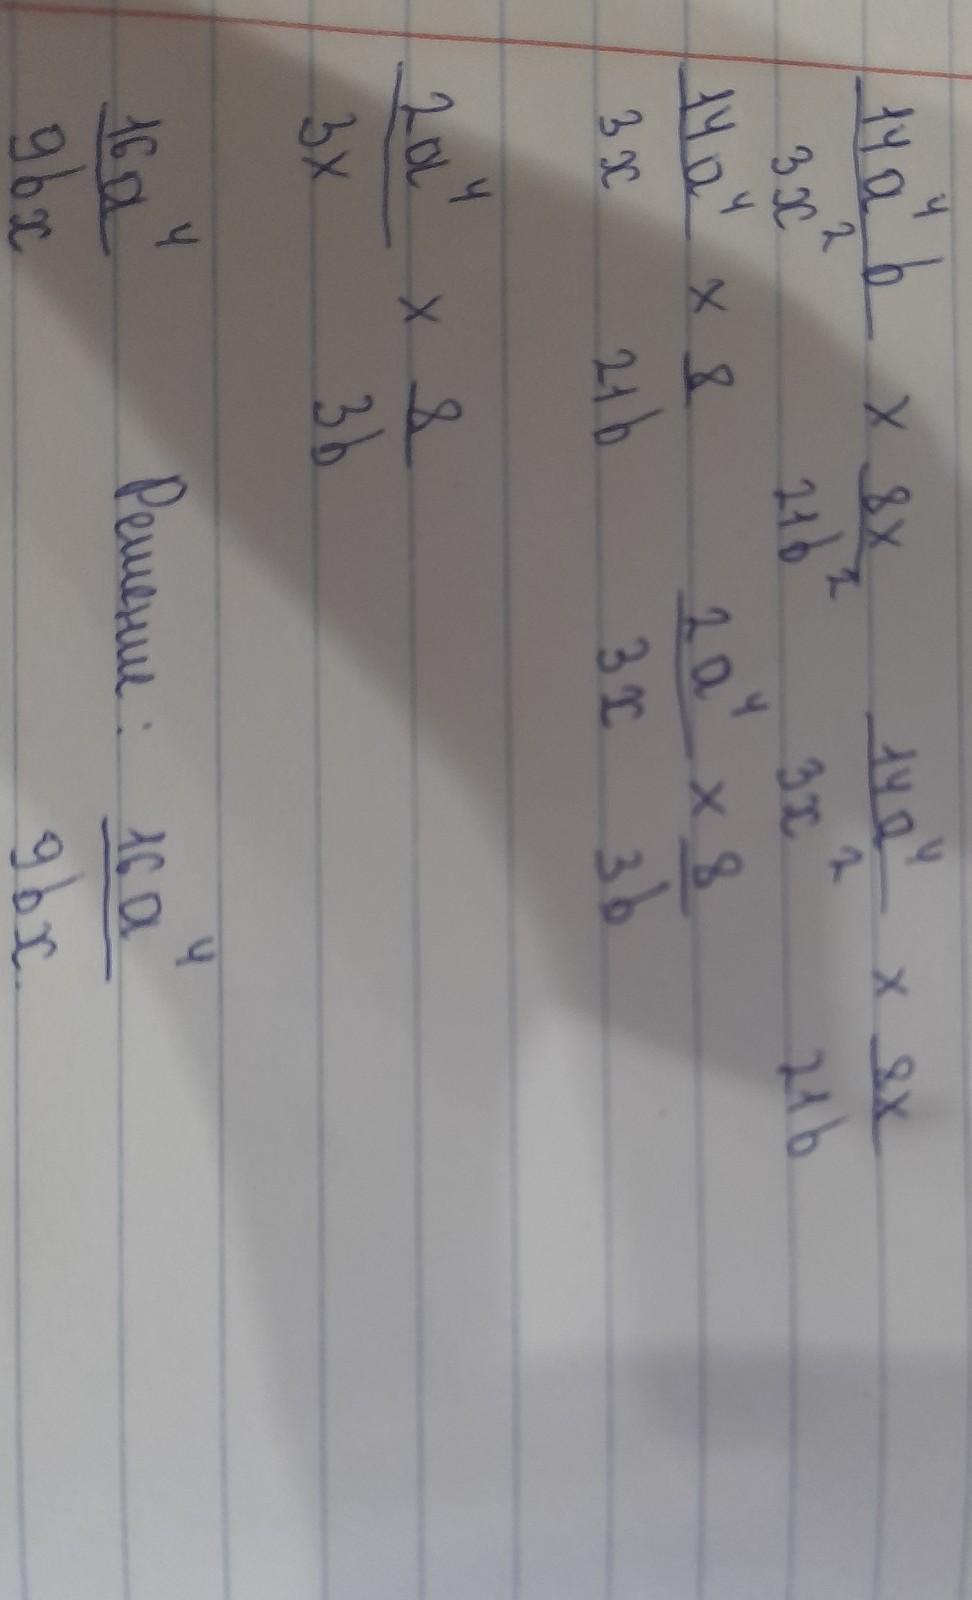 14a⁴b/3x² x 8x/21b² 14a⁴/3x² x 8x/21b
14a⁴/3x x 8/21b 2a⁴/3x x 8/3b
2a⁴/3x x 8/3b
16a⁴/9bx Решение: 16a⁴/9bx.